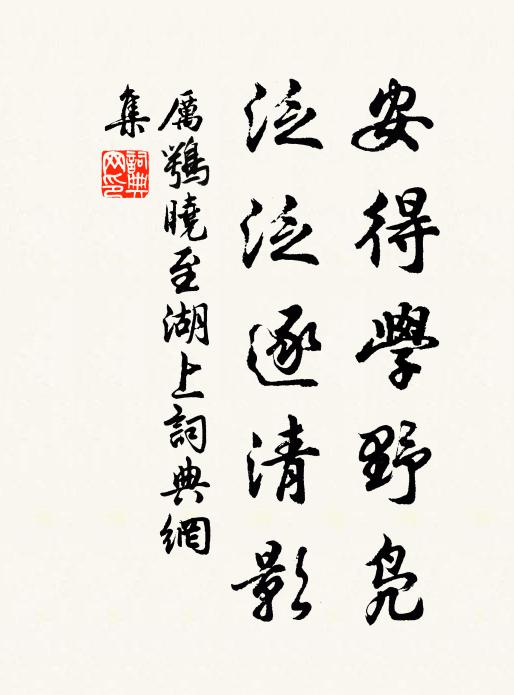 安得學野鳧
泛泛逐清影
厲鶚曉至湖上詞典網
集
詞典
网印